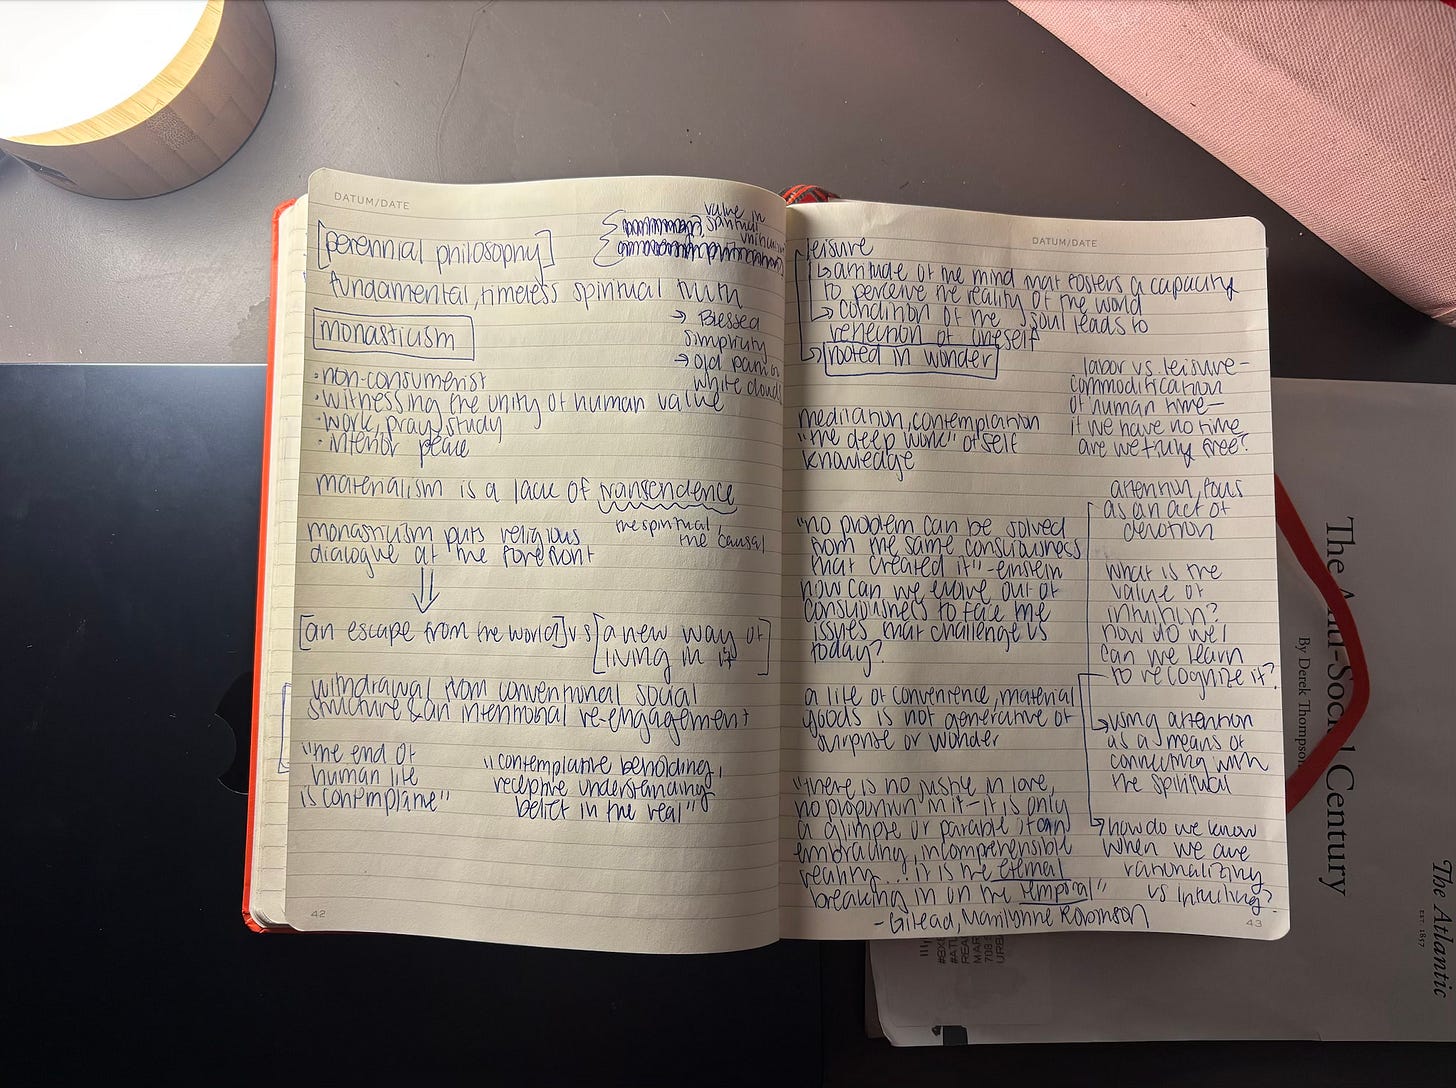 DATUM/DATE
[perennial philosophy]
value in
spiritual
fundamental, timeless spiritual truth
→ Blessed
simplicity
→ old pan
white clouds
monasticism
· non-consumerist
· witnessing the unity of human value
· work, pray, study
· interior peace
materialism is a lack of transcendence
the spiritual
the causal
monasticism puts religious
dialogue at the forefront
[an escape from the world] vs [a new way of
living in it]
withdrawal from conventional social
structure & an intentional re-engagement
"the end of
human life
is contemplative"
"contemplative beholding,
receptive understanding,
belief in the real"
42
DATUM/DATE
leisure
↳ attitude of the mind that fosters a capacity
to perceive the reality of the world
→ condition of the soul leads to
reflection of oneself
→ rooted in wonder
labor vs. leisure –
commodification
of human time –
if we have no time
are we truly free?
meditation, contemplation
"the deep work" of self
knowledge
attention, focus
as an act of
devotion
"no problem can be solved
from the same consciousness
that created it" - einstein
how can we evolve our
consciousness to face the
issues that challenge us
today?
what is the
value of
intuition?
how do we/
can we learn
to recognize it?
a life of convenience, material
goods is not generative of
surprise or wonder
↳ using attention
as a means of
connecting with
the spiritual
"there is no justice in love,
no proportion in it – it is only
a glimpse or parable of an
embracing, incomprehensible
reality... it is the eternal
breaking in on the temporal"
- Gilead, Marilynne Robinson
→ how do we know
when we are
rationalizing
vs intuiting?
43
The Anti-Social Century
By Derek Thompson
The Atlantic
EST 1857